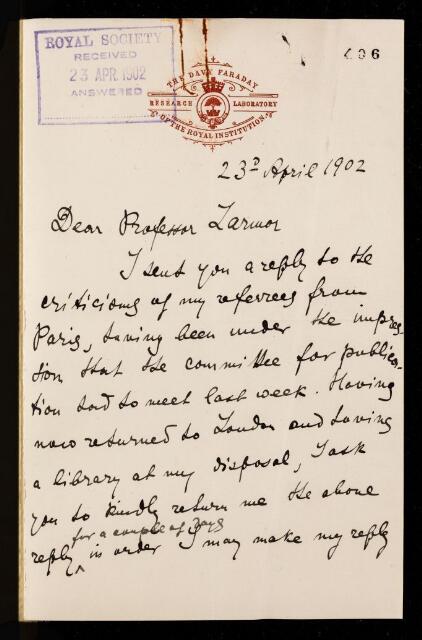 ROYAL SOCIETY
RECEIVED
23 APR 1902
ANSWERED
406
THE DAVY FARADAY
RESEARCH LABORATORY
OF THE ROYAL INSTITUTION.
23D April 1902
Dear Professor Larmor
I sent you a reply to the
criticisms of my referees from
Paris, having been under the impres-
sion that the committee for publica-
tion had to meet last week. Having
now returned to London and having
a library at my disposal, I ask
you to kindly return me the above
for a couple of days
reply in order I may make my reply